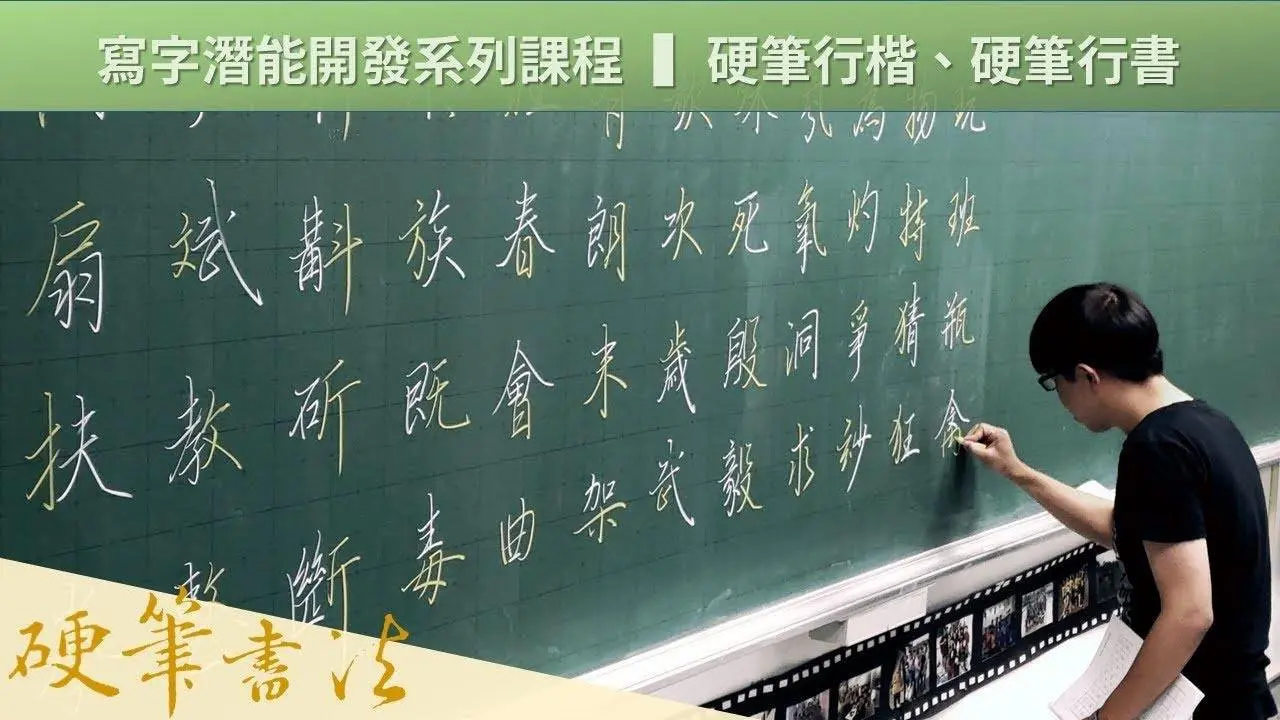 寫字潛能開發系列課程 ▌ 硬筆行楷、硬筆行書
扇扶
斌教
斟斫斷
族既毒
春會曲
朗末架
次歲武
死殷毅
氛氧洞求
為灼爭
物特猜狂
玩班瓶禽
硬筆書法